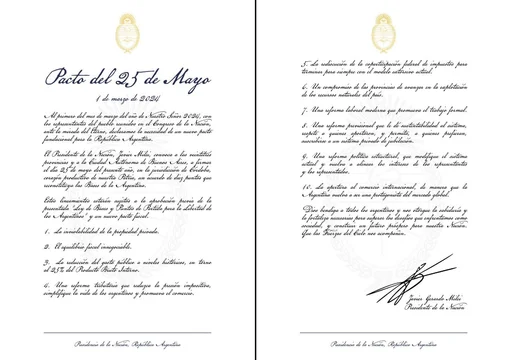 Pacto del 25 de Mayo
1 de marzo de 2024
Al primer día del mes de marzo del año de Nuestro Señor 2024, con
los representantes del pueblo reunidos en el Congreso de la Nación,
ante la mirada del Eterno, declaramos la necesidad de un nuevo pacto
fundacional para la República Argentina.
El Presidente de la Nación, Javier Milei, convoca a las veintitrés
provincias y a la Ciudad Autónoma de Buenos Aires, a firmar
el día 25 de mayo del presente año, en la jurisdicción de Córdoba,
corazón productivo de nuestra Patria, un acuerdo de diez puntos que
reconstituya las Bases de la Argentina.
Estos lineamientos estarán sujetos a la aprobación previa de la
presentada "Ley de Bases y Puntos de Partida para la Libertad de
los Argentinos" y un nuevo pacto fiscal.
1. La inviolabilidad de la propiedad privada.
2. El equilibrio fiscal innegociable.
3. La reducción del gasto público a niveles históricos, en torno
al 25% del Producto Bruto Interno.
4. Una reforma tributaria que reduzca la presión impositiva,
simplifique la vida de los argentinos y promueva el comercio.
Presidencia de la Nación, República Argentina
5. La rediscusión de la coparticipación federal de impuestos para
terminar para siempre con el modelo extorsivo actual.
6. Un compromiso de las provincias de avanzar en la explotación
de los recursos naturales del país.
7. Una reforma laboral moderna que promueva el trabajo formal.
8. Una reforma previsional que le dé sustentabilidad al sistema,
respete a quienes aportaron, y permita, a quienes prefieran,
suscribirse a un sistema privado de jubilación.
9. Una reforma política estructural, que modifique el sistema
actual y vuelva a alinear los intereses de los representantes
y los representados.
10. La apertura al comercio internacional, de manera que la
Argentina vuelva a ser una protagonista del mercado global.
Dios bendiga a todos los argentinos y nos otorgue la sabiduría y
la fortaleza necesarias para superar los desafíos que enfrentamos como
sociedad, y construir un futuro próspero para nuestra Nación.
Que las Fuerzas del Cielo nos acompañen.
Javier Gerardo Milei
Presidente de la Nación
Presidencia de la Nación, República Argentina